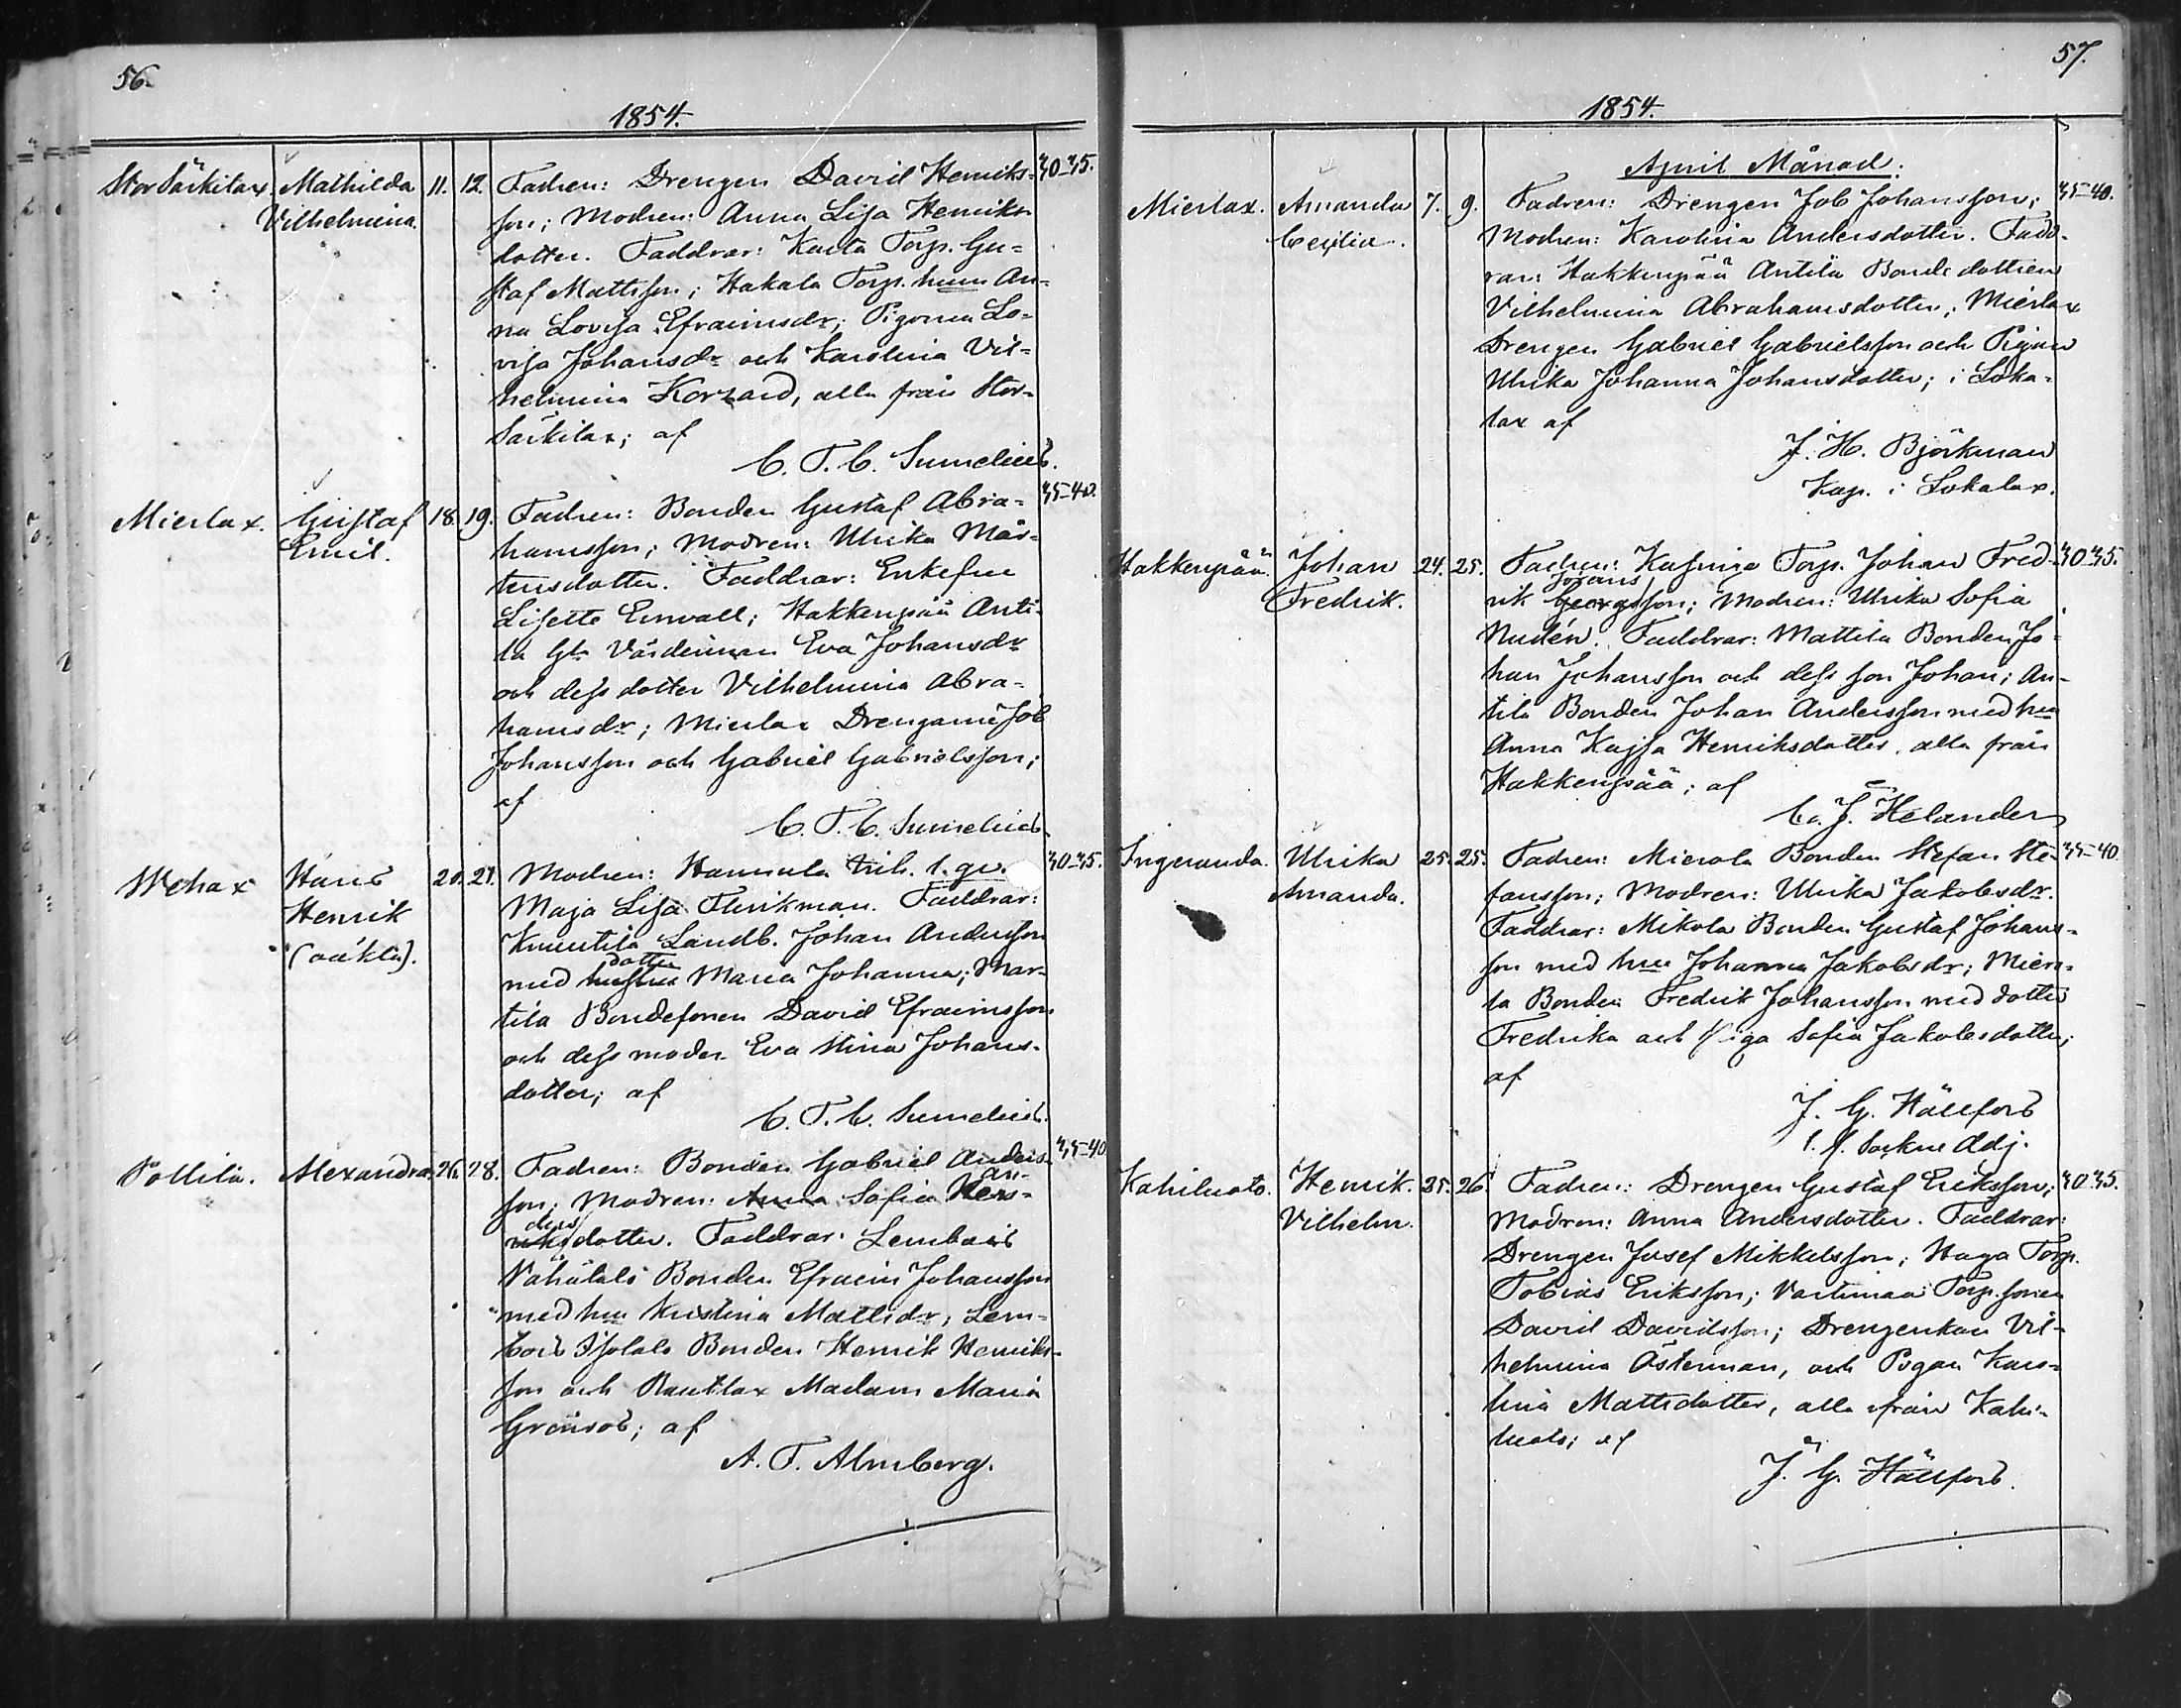 56.
1854.
Stor Särkilax. Mathilda 11. 12. Fadren: Drengen David Henriks- 30-35.
Vilhelmina. son; Modren: Anna Lisa Henriks
dotter. Faddrar: Torp. Gu-
staf Mattsson; Hakala Torp. hum An-
na Lovisa Efraimsdr; Pigorna Lo-
visa Johansdr och Karolina Vil-
helmina , alla från Stor-
Särkilax; af
C. T. C. Sumelius.
Mierlax. Gustaf 18. 19. Fadren: Bonden Gustaf Abra- 35-40.
Emil. hamsson; Modren: Ulrika Mår-
tensdotter. Faddrar: Enkefru
Lisette Enwall; Hakkenpää Anti-
la Gla Värdinnan Eva Johansdr
och dess dotter Vilhelmina Abra-
hamsdr; Mierlax Drengarne Job
Johansson och Gabriel Gabrielsson;
af
C. T. C. Sumelius.
Wehax Hans 20. 21. Modren: Hannula Inh. 1. gr. 30-35.
Henrik Maja Lisa Flinkman. Faddrar:
(oäkta). Knuutila Landb. Johan Andersson
dotter
med hustru Maria Johanna; Mar-
tila Bondesonen David Efraimsson
och dess moder Eva Stina Johans-
dotter; af
C. T. C. Sumelius.
Pollila. Alexandra. 26. 28. Fadren: Bonden Gabriel Anders- 35-40
an-
son; Modren: Anna Sofia Hen-
ders
riksdotter. Faddrar: Lembois
Vähätalo Bonden Efraim Johansson
med hu Kristina Mattsdr; Lem-
bois Isotalo Bonden Henrik Henriks-
son och Rautlax Madam Maria
Grönros; af
A. T. Almberg.
57.
1854.
April Månad.
Mierlax. Amanda 7. 9. Fadren: Drengen Job Johansson; 35-40.
Cecilia. Modren: Karolina Andersdotter. Fadd-
rar: Hakkenpää Antila Bonde dottren
Vilhelmina Abrahamsdotter; Mierlax
Drengen Gabriel Gabrielsson och Pigan
Ulrika Johanna Johansdotter; i Loka-
lax af
J. H. Björkman
Kap. i Lokalax.
Hakkenpää. Johan 24. 25. Fadren: Torp. Johan Fred- 30-35.
Fredrik. Johans
rik Georgsson; Modren: Ulrika Sofia
Nudén. Faddrar: Mattila Bonden Jo-
han Johansson och dess son Johan; An-
tila Bonden Johan Andersson med hu
Anna Kajsa Henriksdotter, alla från
Hakkenpää; af
C. J. Helander
Ingeranda. Ulrika 25. 25. Fadren: Mierola Bonden Stefan Ste- 35-40
Amanda. fansson; Modren: Ulrika Jakobsdr.
Faddrar: Mikola Bonden Gustaf Johans-
son med hu Johanna Jakobsdr; Miero-
la Bonden Fredrik Johansson med dotter
Fredrika och Piga Sofia Jakobsdotter;
af
J. G. Hällfors
t. f. Sockne Adj.
Kahiluoto. Henrik 25. 26. Fadren: Drengen Gustaf Eriksson; 30-35.
Vilhelm. Modren: Anna Andersdotter. Faddrar:
Drengen Josef Mikkelsson; Haga Torp.
Tobias Eriksson; Vartimaa Torp. sonen
David Davidsson; Drengenkan Vil-
helmina Österman, och Pigan Karo-
lina Mattsdotter, alla från Kahi-
luoto; af
J. G. Hällfors.